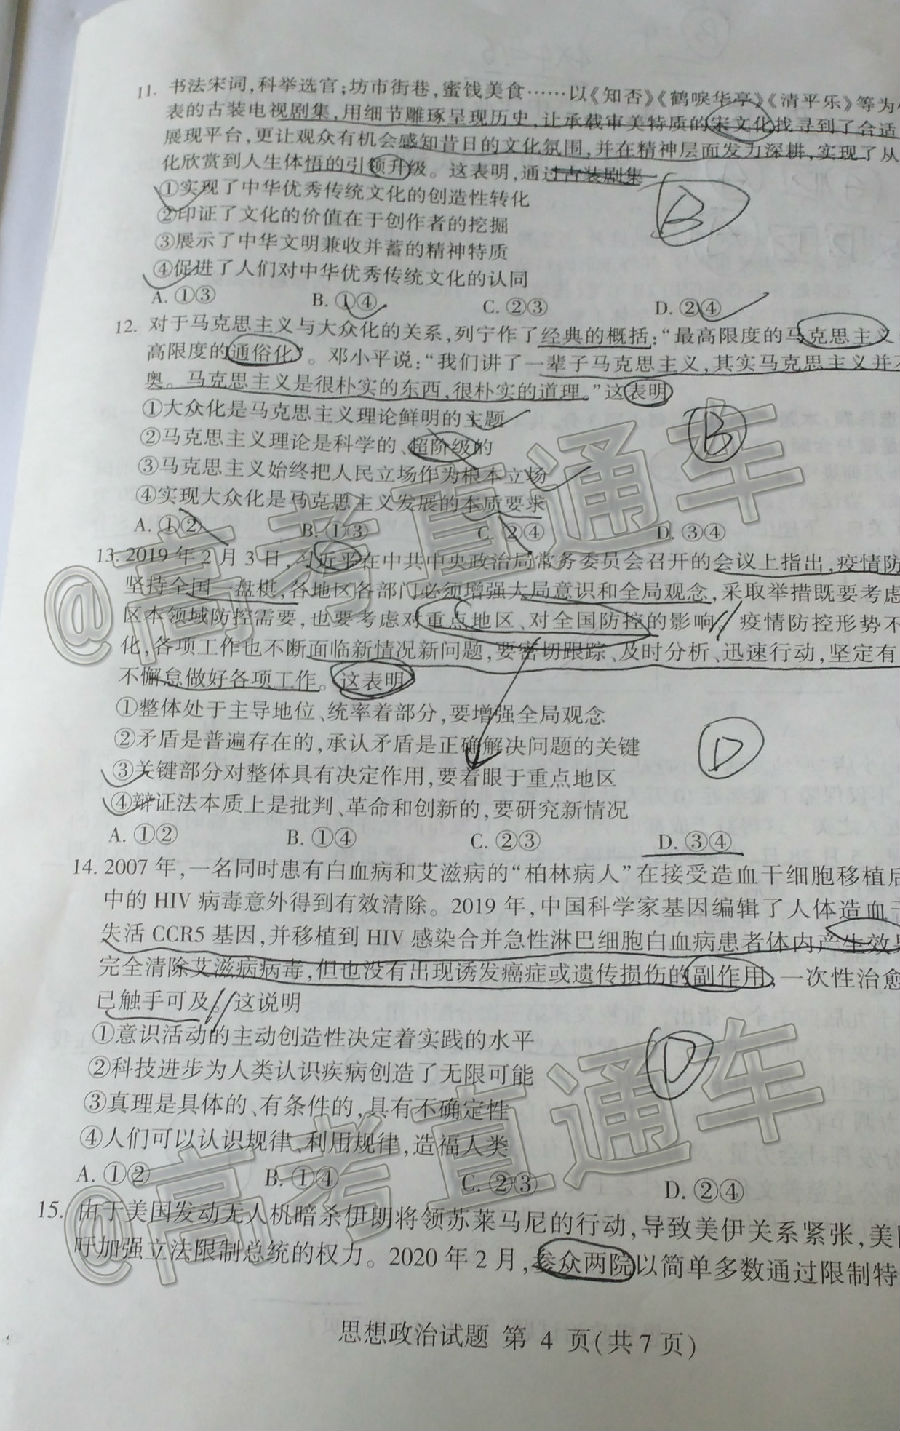 11. 书法宋词,科举选官;坊市街巷,蜜饯美食……以《知否》《鹤唳华亭》《清平乐》等为
表的古装电视剧集,用细节雕琢呈现历史,让承载审美特质的宋文化找寻到了合适
展现平台,更让观众有机会感知昔日的文化氛围,并在精神层面发力深耕,实现了从
化欣赏到人生体悟的引领升级。这表明,通过古装剧集
①实现了中华优秀传统文化的创造性转化
②印证了文化的价值在于创作者的挖掘
B
③展示了中华文明兼收并蓄的精神特质
④促进了人们对中华优秀传统文化的认同
A. ①③ B. ①④ C. ②③ D. ②④
12. 对于马克思主义与大众化的关系,列宁作了经典的概括:“最高限度的马克思主义
高限度的通俗化”。邓小平说:“我们讲了一辈子马克思主义,其实马克思主义并不
奥。马克思主义是很朴实的东西,很朴实的道理。”这表明
①大众化是马克思主义理论鲜明的主题
②马克思主义理论是科学的、超阶级的
B
③马克思主义始终把人民立场作为根本立场
④实现大众化是马克思主义发展的本质要求
A. ①② B. ①③ C. ②④ D. ③④
13. 2019年2月3日,习近平在中共中央政治局常务委员会召开的会议上指出,疫情防
坚持全国一盘棋,各地区各部门必须增强大局意识和全局观念,采取举措既要考虑
区本领域防控需要,也要考虑对重点地区、对全国防控的影响。疫情防控形势不
化,各项工作也不断面临新情况新问题,要密切跟踪、及时分析、迅速行动,坚定有
不懈怠做好各项工作。这表明
①整体处于主导地位、统率着部分,要增强全局观念
②矛盾是普遍存在的,承认矛盾是正确解决问题的关键
D
③关键部分对整体具有决定作用,要着眼于重点地区
④辩证法本质上是批判、革命和创新的,要研究新情况
A. ①② B. ①④ C. ②③ D. ③④
14. 2007年,一名同时患有白血病和艾滋病的“柏林病人”在接受造血干细胞移植后
中的HIV病毒意外得到有效清除。2019年,中国科学家基因编辑了人体造血干
失活CCR5基因,并移植到HIV感染合并急性淋巴细胞白血病患者体内产生效果
完全清除艾滋病病毒,但也没有出现诱发癌症或遗传损伤的副作用,一次性治愈
已触手可及。这说明
①意识活动的主动创造性决定着实践的水平
②科技进步为人类认识疾病创造了无限可能
D
③真理是具体的、有条件的,具有不确定性
④人们可以认识规律,利用规律,造福人类
A. ①② B. ①④ C. ②③ D. ②④
15. 由于美国发动无人机暗杀伊朗将领苏莱马尼的行动,导致美伊关系紧张,美国
吁加强立法限制总统的权力。2020年2月,参众两院以简单多数通过限制特
思想政治试题 第 4 页(共7页)
@高考直通车
@高考直通车